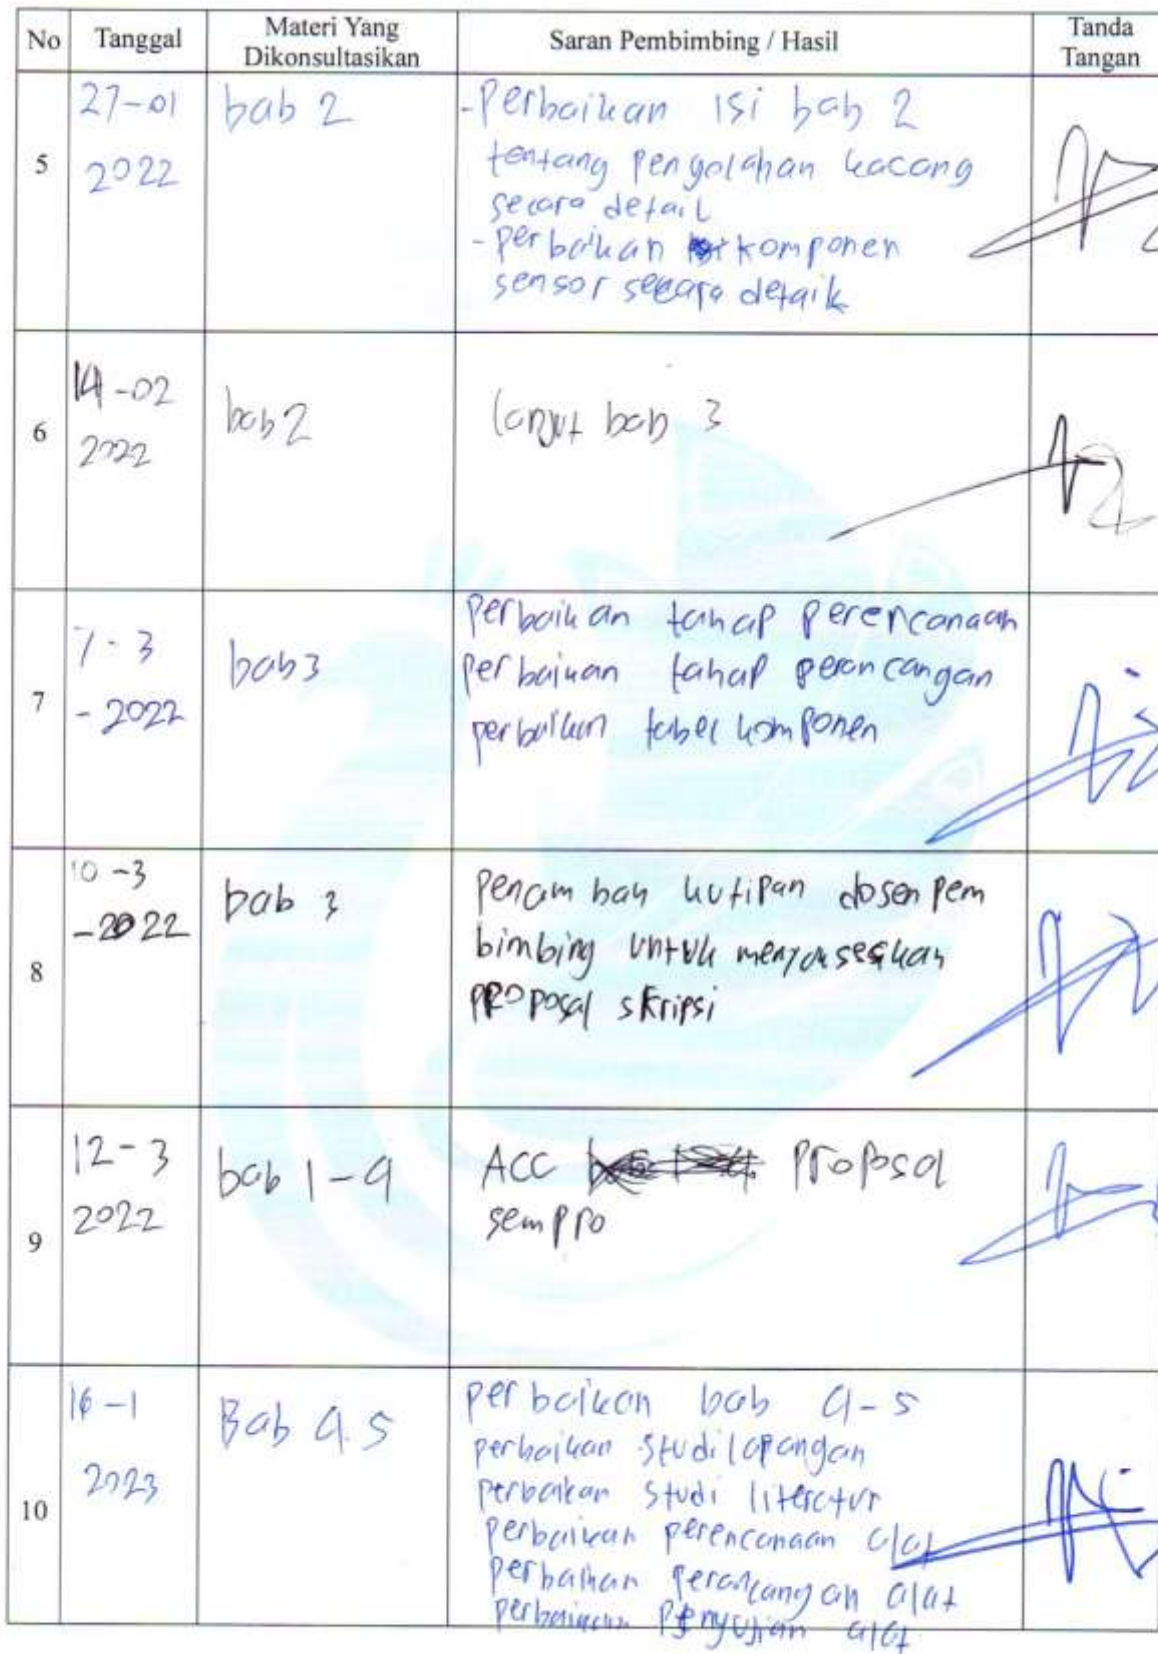 No Tanggal Materi Yang Dikonsultasikan Saran Pembimbing / Hasil Tanda Tangan
5
27-01
2022
bab 2
- Perbaikan isi bab 2
tentang pengolahan kacang
secara detail
- perbaikan komponen
sensor secara detaik
6
14-02
2022
bab 2
lanjut bab 3
7
7-3
-2022
bab 3
perbaikan tahap perencanaan
perbaikan tahap perancangan
perbaikan tabel komponen
8
10-3
-2022
bab 3
Penambah kutipan dosen pem
bimbing untuk
proposal skripsi
9
12-3
2022
bab 1-4
ACC proposal
sempro
10
16-1
2023
Bab 4.5
perbaikan bab 4-5
perbaikan studi lapangan
perbaikan studi literatur
perbaikan perencanaan alat
perbaikan perancangan alat
perbaikan pengujian alat